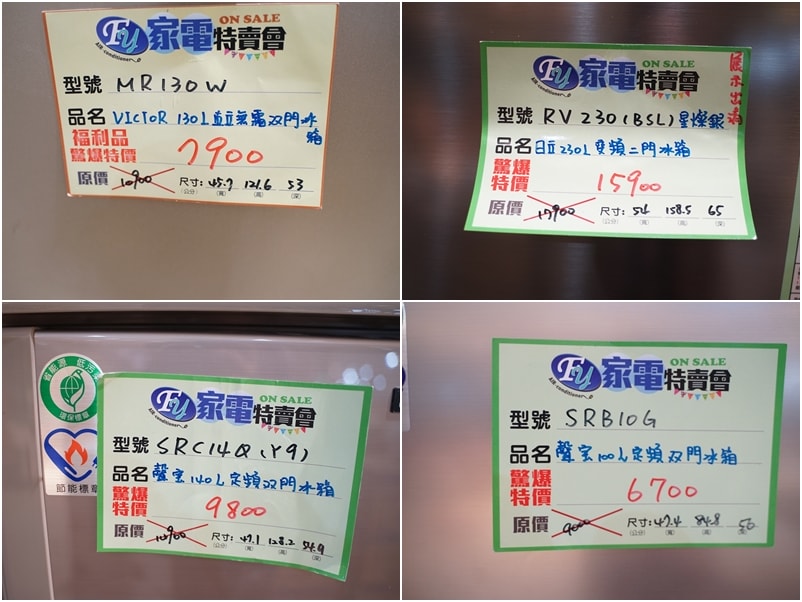 FU 家電特賣會 ON SALE
AIR conditioner
型號 MR130W
品名 VICTOR 130L 直立無霜双門冰箱
福利品
驚爆特價 7900
原價 10900 尺寸: 45.7 121.6 53
(公分) (寬) (高) (深)
FU 家電特賣會 ON SALE
AIR conditioner
展示出清
型號 RV230(BSL)星燦銀
品名 日立230L変頻二門冰箱
驚爆特價 15900
原價 17900 尺寸: 54 158.5 65
(公分) (寬) (高) (深)
省能源 低污染
環保標章
節能標章
FU 家電特賣會 ON SALE
AIR conditioner
型號 SRC14Q(Y9)
品名 聲宝140L定頻双門冰箱
驚爆特價 9800
原價 尺寸: 47.1 128.2 54.9
(公分) (寬) (高) (深)
FU 家電特賣會 ON SALE
AIR conditioner
型號 SRB10G
品名 聲宝100L定頻双門冰箱
驚爆特價 6700
原價 9000 尺寸: 47.4 84.8 50
(公分) (寬) (高) (深)